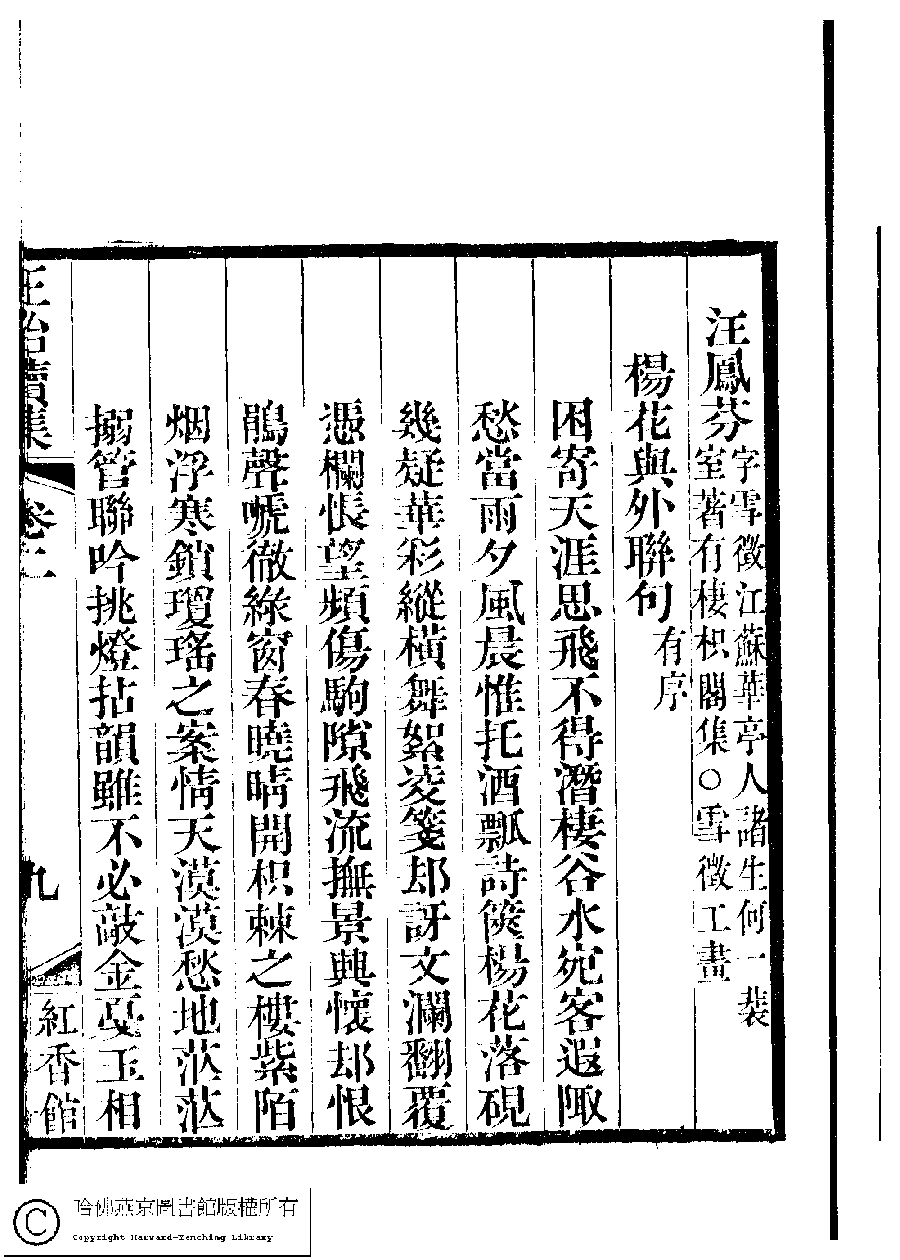 汪鳳芬
字雪徵江蘇華亭人諸生何一裴
室著有棲枳閣集○雪徵工畫
楊花與外聯句
有序
困寄天涯思飛不得潛棲谷水宛客遐陬
愁當雨夕風晨惟托酒瓢詩篋楊花落硯
幾疑華彩縱橫舞絮凌箋却訝文瀾翻覆
憑欄悵望頻傷駒隙飛流撫景興懷却恨
鵑聲嗁徹綠窗春曉晴開枳棘之樓紫陌
烟浮寒鎖瓊瑤之案情天漠漠愁地茫茫
搦管聯吟挑燈拈韻雖不必敲金戛玉相
玉台續集
卷二
九
紅香館
哈佛燕京圖書館版權所有
Copyright Harvard-Yenching Library